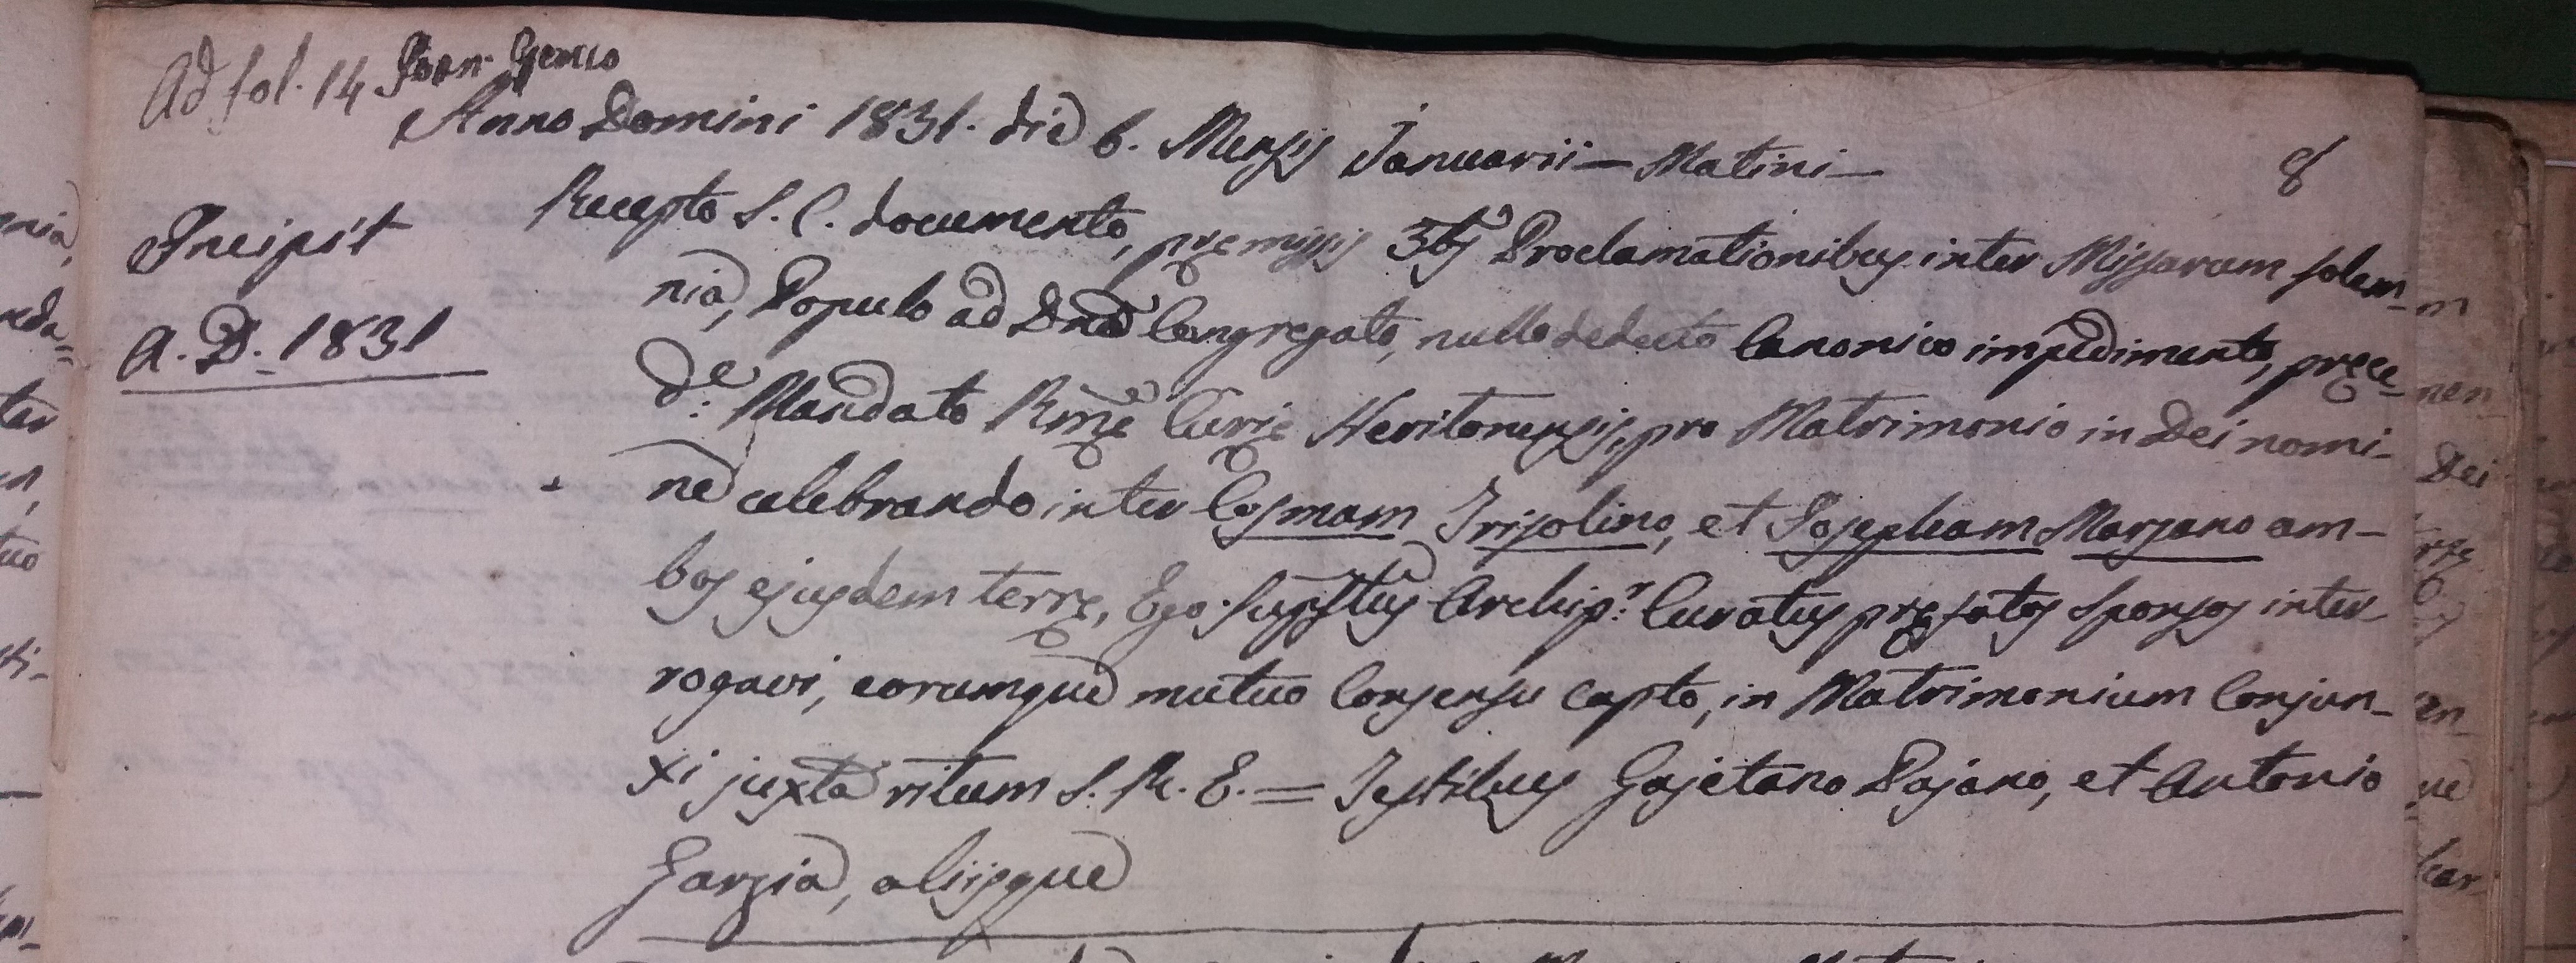 Ad fol. 14 Joan. Genuo
Anno Domini 1831. die 6. Mensis Januarii — Matini —
8
Incipit
A. D. 1831
Recepto S. C. documento, pręmissis 3bs Proclamationibus inter Missarum solem-
nia, Populo ad Dna Congregato, nullo dedecto Canonico impedimento, pręce-
de: Mandato Rmę Curię Neritonensis, pro Matrimonio in Dei nomi-
ne celebrando inter Cosmam Trisolino, et Josepham Marzano am-
bos ejusdem terrę, Ego supstus Archip.r Curatus pręfatos Sponsos inter
rogavi, eorumque mutuo Consensu capto, in Matrimonium Conjun-
xi juxta ritum S. R. E. = Testibus Gajetano Pajano, et Antonio
Garzia, aliisque